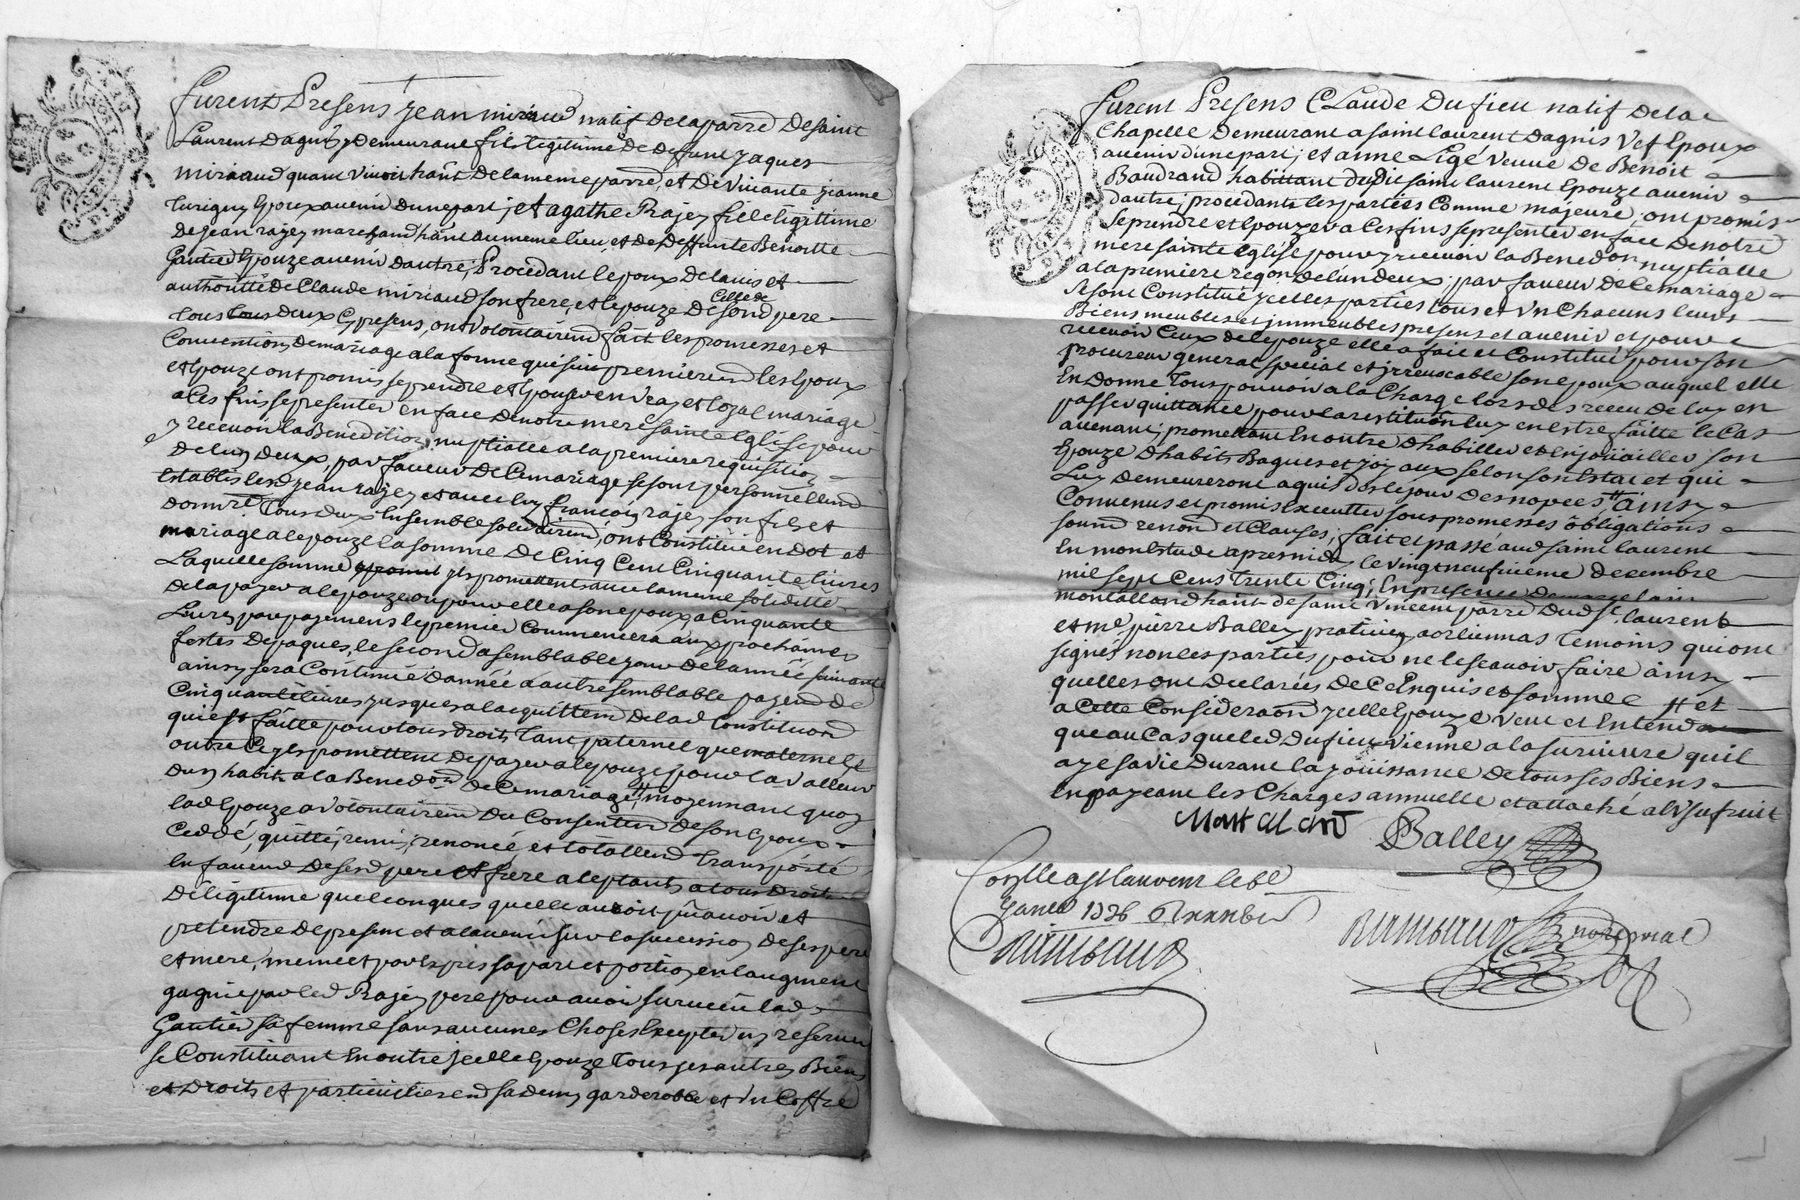 furent Presens jean miraud natif de la parre de saint
Laurent dagny y demeurant fils legitime de defunt jaques
miraud quant vivoit hânt de la meme parre, et de vivante jeanne
Epoux avenir dune part; et agathe Rajey fille legittime
de jean rajey marchand hânt au meme lieu, et de deffunte Benoitte
Gautier Epouze avenir dautre; Procedant lepoux de lavis et
authôrité de Claude miriaud son frere, et lepouze de celle de sond pere
tous deux cy presens, ont volontairemd fait les promesses et
Conventions de mariage a la forme qui suit premieremd les Epoux
et Epouze ont promis se prendre et Epouzer en vray et loyal mariage
a ces fins se presenter en face de notre mere sainte Eglise pour
y recevoir la Benediction nuptialle a la premiere requisition
de lun deux, par faveur de ce mariage se sont personnellemd
Etablis led jean rajey et avec luy françois rajey son fils et
donnre tous deux Ensemble solidairemd, ont Constitué en dot et
mariage a lepouze la somme de Cinq Cent Cinquante livres
Laquelle somme ils promettent avec la meme soliditté
de la payer a lepouze ou pour elle a son epoux a Cinquante
Livres par payemens le premier Commencera aux prochaines
festes de paques, le second a semblable jour de lannée suivante
ainsy sera Continué dannée a autre semblable payemd de
Cinquante livres jusques a lacquittemd de lad Constitution
qui est faitte pour tous droits tant paternel que maternel et
outre ce ils promettent de payer a lepouze pour la valleur
dun habit a la Benedon de ce mariage moyennant quoy
lad Epouze a volontairemd du Consentemd de son Epoux
Ceddé, quitté, remis, renoncé et totallemd transporté
En faveur de sesd pere et frere acceptants a tous droits
de legitime quelconques quelle auroit pu avoir et
pretendre de present et a lavenir sur la succession de ses pere
et mere, meme et par Exprés sa part et portion en laugment
gagnie par led Rajey pere pour avoir survecu lad
Gautier sa femme sans aucunes Choses Excepter ny reserver
se Constituant En outre jcelle Epouze tous ses autres Biens
et Droits et particulieremd sa denrs garderobbe et un Coffre
furent Presens Claude Dufieu natif de la
Chapelle demeurant a saint laurent dagnis Vef Epoux
avenir dune part; et anne Ligé veuve de Benoit
Baudrand habittant dudit saint laurent Epouze avenir
dautre; procedants les parties Comme majeurs, ont promis
se prendre et Epouzer a ces fins se presenter en face de notre
mere sainte Eglise pour y recevoir la Benedon nuptialle
a la premiere reqon de lun deux; par faveur de ce mariage
se sont Constitué jcelles parties tous et un Chacuns leurs
Biens meubles et jmmeubles presens et avenir et pour
recevoir Ceux de lepouze elle a fait et Constitué pour son
procureur general special et jrrevocable son epoux auquel elle
En donne tous pouvoir a la Charge lors des receu de luy en
passer quittance pour la restitution luy en Estre faitte le Cas
avenant; promettant En outre dhabiller et enjoüailler son
Epouze dhabits Bagues et joyaux selon son Estat et qui
Luy demeureront aquis des le jour des nopces, ainsy
Convenus et promis Executter sous promesses obligations
soumd renond et Clauses, fait et passé aud saint laurent
En mon Estude apres midy le vingt neufvieme decembre
mil sept Cens trente Cinq; En presence
montalland hânt de saint vincent parre dud st laurent
et me pierre Balley praticien a orliennas temoins qui ont
signés non les parties pour ne le scavoir faire ainsy
quelles ont declarées de ce Enquis et sommée et
a cette Consideraon jcelle Epouze veut et Entend
que au Cas que led dufieu vienne a la survivre quil
aye sa vie durant la joüissance de tous ses Biens
En payant les Charges annuelle et attaché a l'usufruit
Montaland Balley
Conllé a st laurent le 6e
janer 1736 6
Rimbaud
Rimbaud nore royal